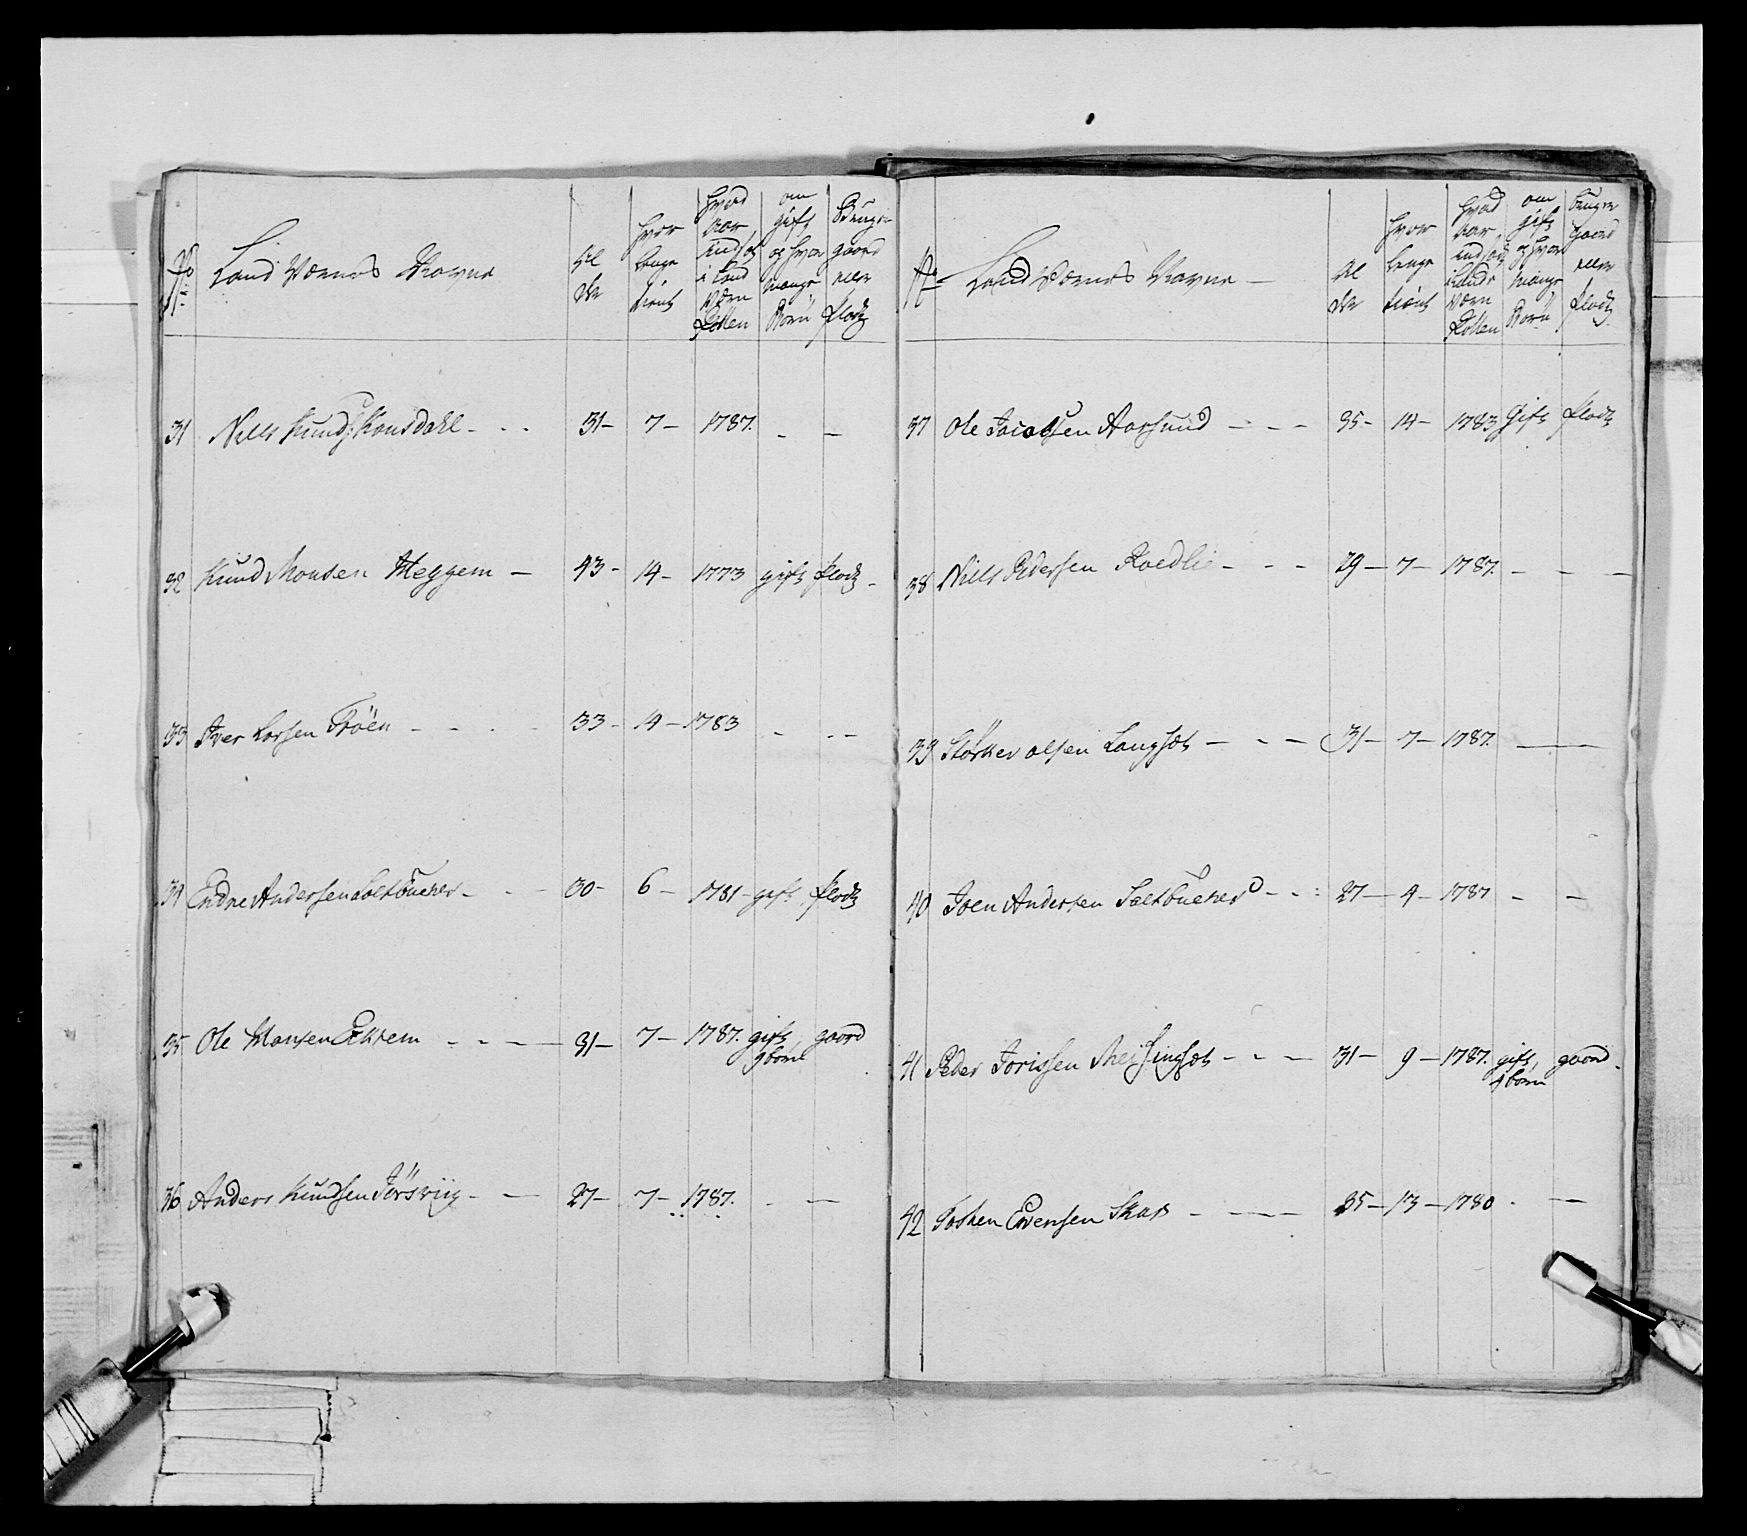 No
Land Værnets Navne
Al
der
hvor
lenge
tient
hvad
Aar
indsat
i Land
Værn
Rollen
om
gift
og hvor
mange
Börn
Beuger
gaard
eller
Plads
31 Nills Knuds: Kansdahl - - - 31 - 7 - 1787. - -
32 Knud Monsen Meggem - 43 - 14 - 1773 gift Plads -
33 Iver Larsen Tröen - - - - 33 - 14 - 1783 - - -
34 Endre Andersen Saltbucher - - - 30 - 6 - 1781 - gift Plads
35 Ole Hansen Ekrem - - - - 31 - 7 - 1787. gift gaard
1 börn
36 Anders Knudsen Jörsviig - - 27 - 7 - 1787. - -
No
Land Værnets Navne -
Al
der
hvor
lenge
tient
hvad
Aar
indsat
i Land
Værn
Rollen
om
gift
og hvor
mange
Börn
beuger
Gaard
eller
Plads
37 Ole Jacobsen Aarsund - - - 35 - 14 - 1783 Gift Plads
38 Nills Pedersen Roedlie - - - 29 - 7 - 1787. - - -
39 Störker olsen Langset - - - 31 - 7 - 1787. -
40 Joen Andersen Saltbucher - - : 27 - 4 - 1787 - -
41 Peder Jorissen Meisingset - - - 31 - 9 - 1787. gift gaard.
1 börn
42 Evensen Skar - - - 35 - 13 - 1780 - -